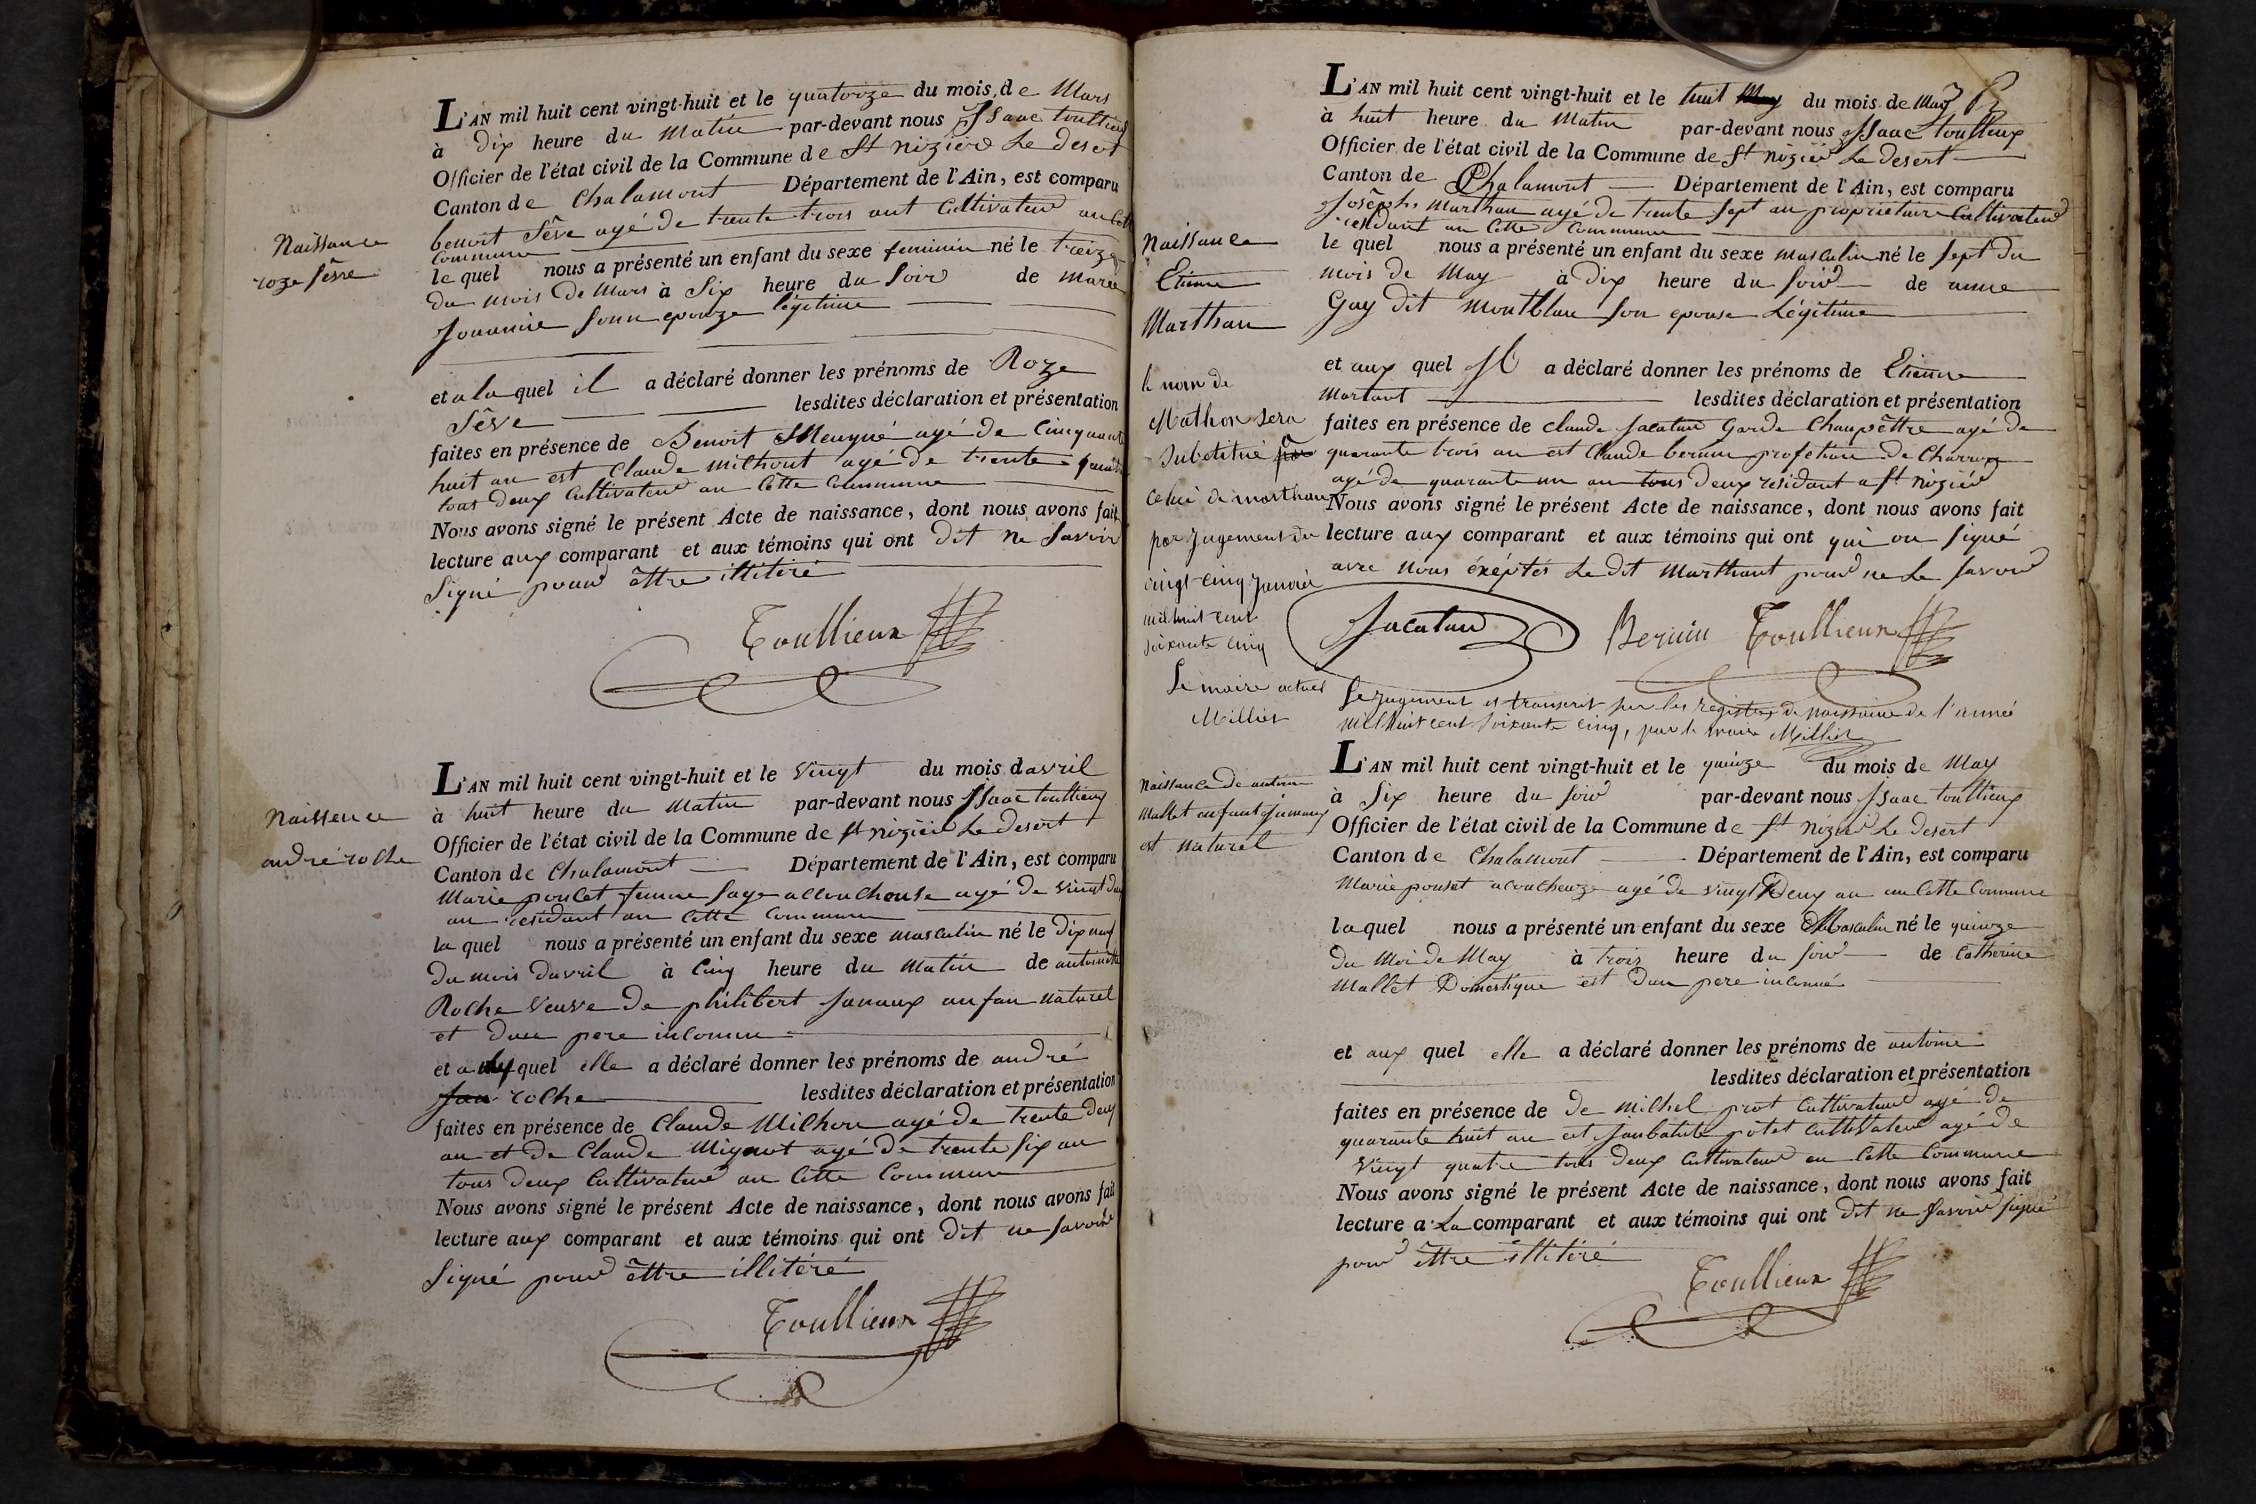 L'AN mil huit cent vingt-huit et le quatorze du mois de Mars
à dix heure du Matin par-devant nous Isaac toullieux
Officier de l'état civil de la Commune de St nizier Le desert
Canton de Chalamont Département de l'Ain, est comparu
benoit Sêve agé de trente trois ant Cultivateur an Cette
Commune
Naissance
roze Sêve
le quel nous a présenté un enfant du sexe feminin né le treize
du mois de Mars à Six heure du Soir de marie
Jouannie Sonn epouze légitime
et a la quel il a déclaré donner les prénoms de Roze
Sêve lesdites déclaration et présentation
faites en présence de Benoit Meugné agé de Cinquante
huit an est Claude milhont agé de trente
tous deux Cultivateur an Cette Commune
Nous avons signé le présent Acte de naissance, dont nous avons fait
lecture aux comparant et aux témoins qui ont Dit ne Savoir
Signé pour êttre illitéré
Toullieux
L'AN mil huit cent vingt-huit et le Vingt du mois davril
à huit heure du Matin par-devant nous Isaac toullieux
Officier de l'état civil de la Commune de St nizier Le desert
Canton de Chalamont Département de l'Ain, est comparu
Naissence
andré roche
Marie poulet femme Sage accoucheuse agé de Vingt deux
an residant an Cette Commune
la quel nous a présenté un enfant du sexe masculin né le Dix neuf
du mois davril à Cinq heure du Matin de antoinette
Roche Veuve de philibert Janaux anfan naturel
et dun pere inConnu
et a quel elle a déclaré donner les prénoms de andré
roche lesdites déclaration et présentation
faites en présence de Claude Milhon agé de trente deux
an et de Claude Mignot agé de trente Six an
tous deux Cultivateur an Cette Commune
Nous avons signé le présent Acte de naissance, dont nous avons fait
lecture aux comparant et aux témoins qui ont Dit ne Savoir
Signé pour êttre illitéré
Toullieux
L'AN mil huit cent vingt-huit et le huit May du mois de May
à huit heure du Matin par-devant nous Isaac toullieux
Officier de l'état civil de la Commune de St nizier Le desert
Canton de Chalamont Département de l'Ain, est comparu
Joseph Marthan agé de trente Sept an propriétaire Cultivateur
residant an Cette Commune
Naissance
Etienne
Marthan
le quel nous a présenté un enfant du sexe masculin né le Sept du
mois de May à Dix heure du Soir de anne
Gay dit Montblan Son epouse Légitime
et aux quel Il a déclaré donner les prénoms de Etienne
Martant lesdites déclaration et présentation
faites en présence de claude Jacatan Garde Champêttre agé de
quarante trois an est Claude profetion de Charron
agé de quarante un an tous Deux residant a St nizier
Nous avons signé le présent Acte de naissance, dont nous avons fait
lecture aux comparant et aux témoins qui ont qui on Signé
avec nous éxéptés Le dit Marthant pour ne Le Savoir
Jacatan Toullieux
le nom de
Mathon sera
substitué par
celui de marthan
par Jugement du
vingt cinq Janvier
mil huit cent
soixante cinq
Le maire actuel
Millier
Le Jugement est transcrit sur les registres de naissance de l'année
mil huit cent soixante cinq, par le maire Millier
L'AN mil huit cent vingt-huit et le quinze du mois de May
à Six heure du Soir par-devant nous Isaac toullieux
Officier de l'état civil de la Commune de St nizier Le desert
Canton de Chalamont Département de l'Ain, est comparu
Naissance de antoine
Mallet anfant
est naturel
Marie poulet acoucheuze agé de vingt Deux an an Cette Commune
la quel nous a présenté un enfant du sexe Masculin né le quinze
du Moi de May à trois heure du Soir de Catherine
Mallet Domestique est Dun pere inConnué
et aux quel elle a déclaré donner les prénoms de antoine
lesdites déclaration et présentation
faites en présence de De Michel prot Cultivateur agé de
quarante huit an est Janbatiste potet Cultivateur agé de
Vingt quatre tous Deux Cultivateur en Cette Commune
Nous avons signé le présent Acte de naissance, dont nous avons fait
lecture a La comparant et aux témoins qui ont dit ne Savoir Signé
pour êttre illitéré
Toullieux